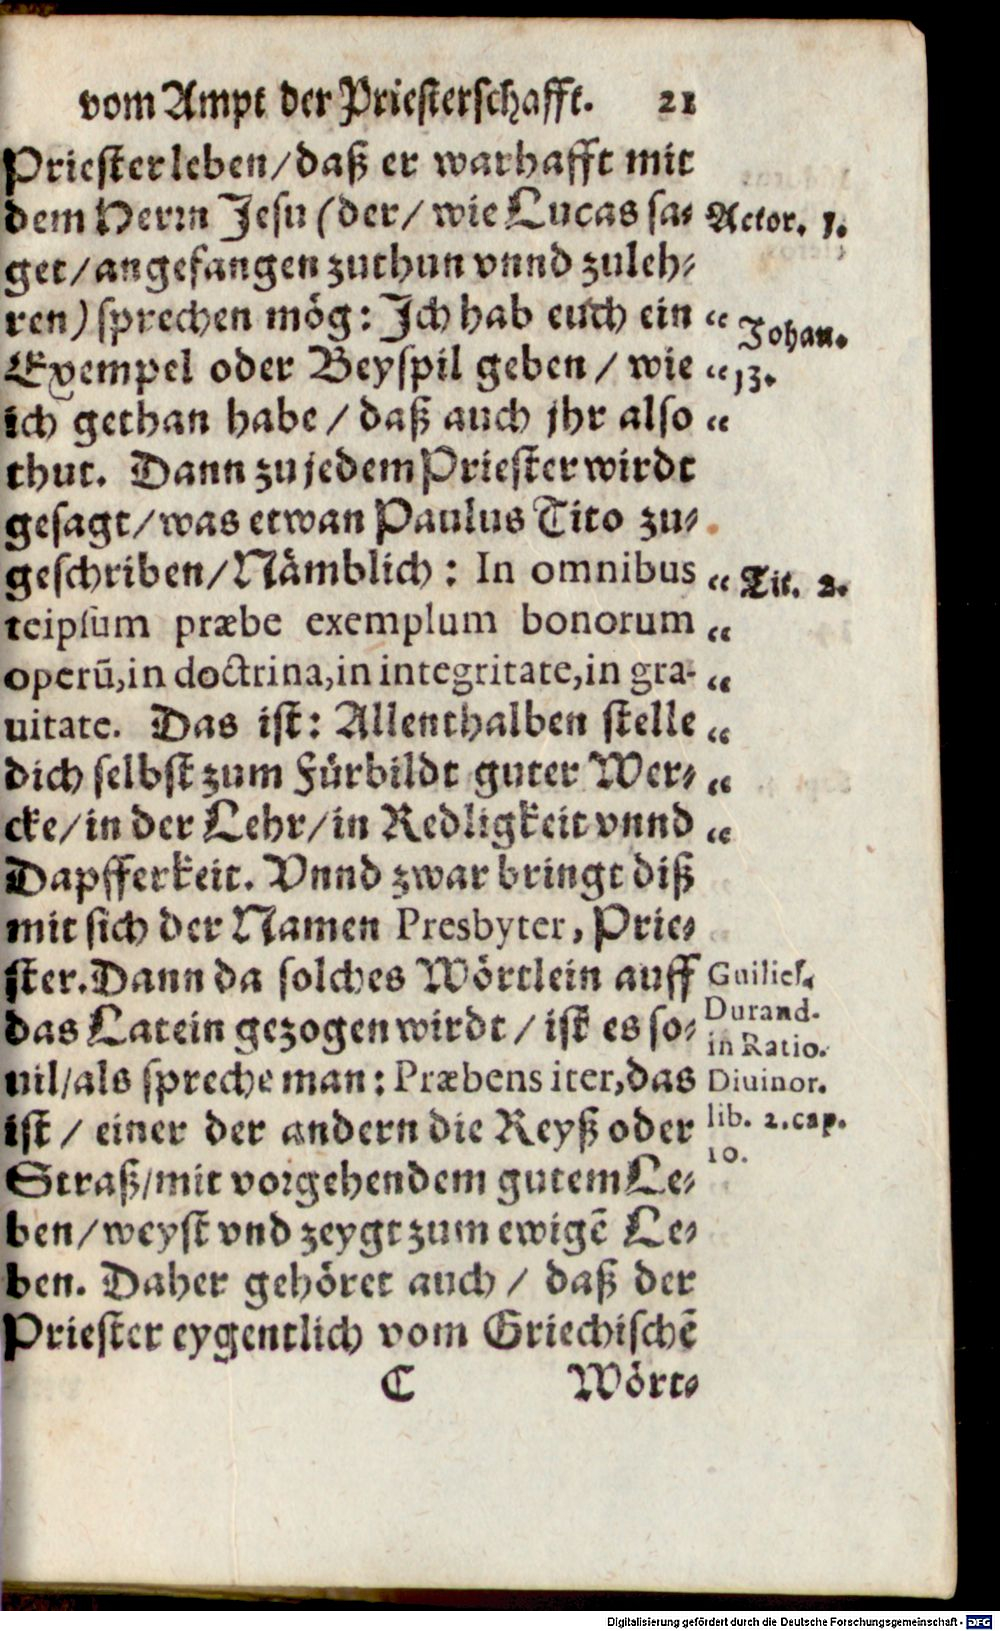 vom Ampt der Priesterschafft. 21
Priester leben/daß er warhafft mit
dem Herrn Jesu (der/ wie Lucas sa-
get/angefangen zuthun vnnd zuleh-
ren) sprechen mög: Ich hab euch ein
Exempel oder Beyspil geben / wie
ich gethan habe / daß auch jhr also
thut. Dann zu jedem Priester wirdt
gesagt/was etwan Paulus Tito zu-
geschriben/Nämblich: In omnibus
teipsum præbe exemplum bonorum
operū,in doctrina,in integritate,in gra-
uitate. Das ist: Allenthalben stelle
dich selbst zum Fürbildt guter Wer-
cke/in der Lehr/in Redligkeit vnnd
Dapfferkeit. Vnnd zwar bringt diß
mit sich der Namen Presbyter, Prie-
ster. Dann da solches Wörtlein auff
das Latein gezogen wirdt / ist es so-
uil/als spreche man: Præbens iter,das
ist / einer der andern die Reyß oder
Straß/mit vorgehendem gutem Le-
ben/weyst vnd zeygt zum ewigē Le-
ben. Daher gehöret auch / daß der
Priester eygentlich vom Griechischē
C Wört-
Actor. 1.
“ Johan.
“ 13.
“
“ Tit. 2.
“
“
“
“
“
Guiliel.
Durand.
in Ratio.
Diuinor.
lib. 2. cap.
10.
Digitalisierung gefördert durch die Deutsche Forschungsgemeinschaft - DFG